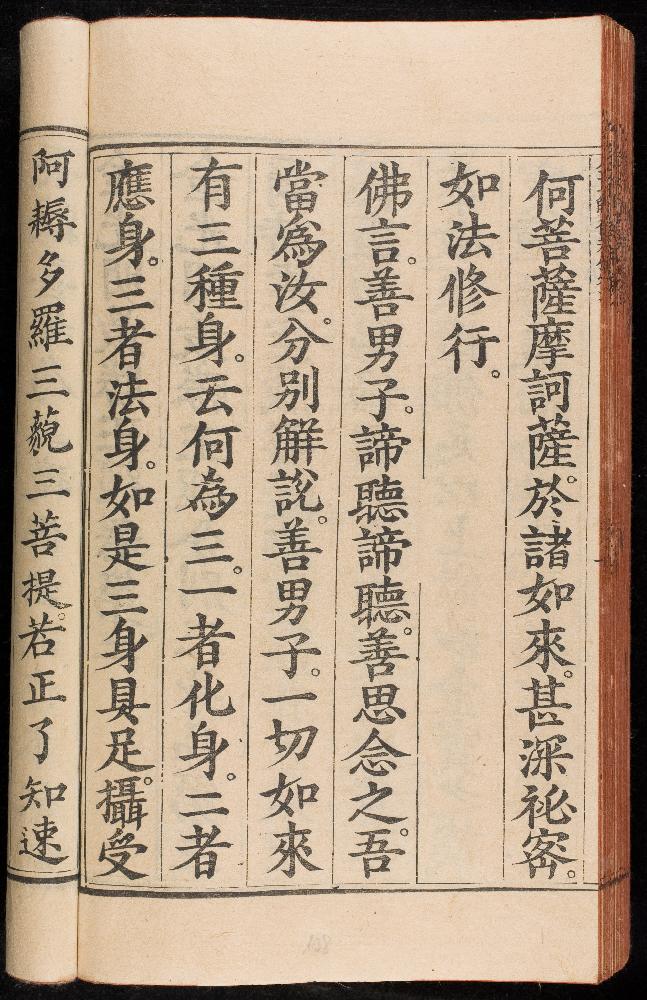 何菩薩摩訶薩。於諸如來。甚深祕密。
如法修行。
佛言。善男子。諦聽諦聽。善思念之。吾
當為汝。分別解說。善男子。一切如來
有三種身。云何為三。一者化身。二者
應身。三者法身。如是三身具足。攝受
阿耨多羅三藐三菩提。若正了知速